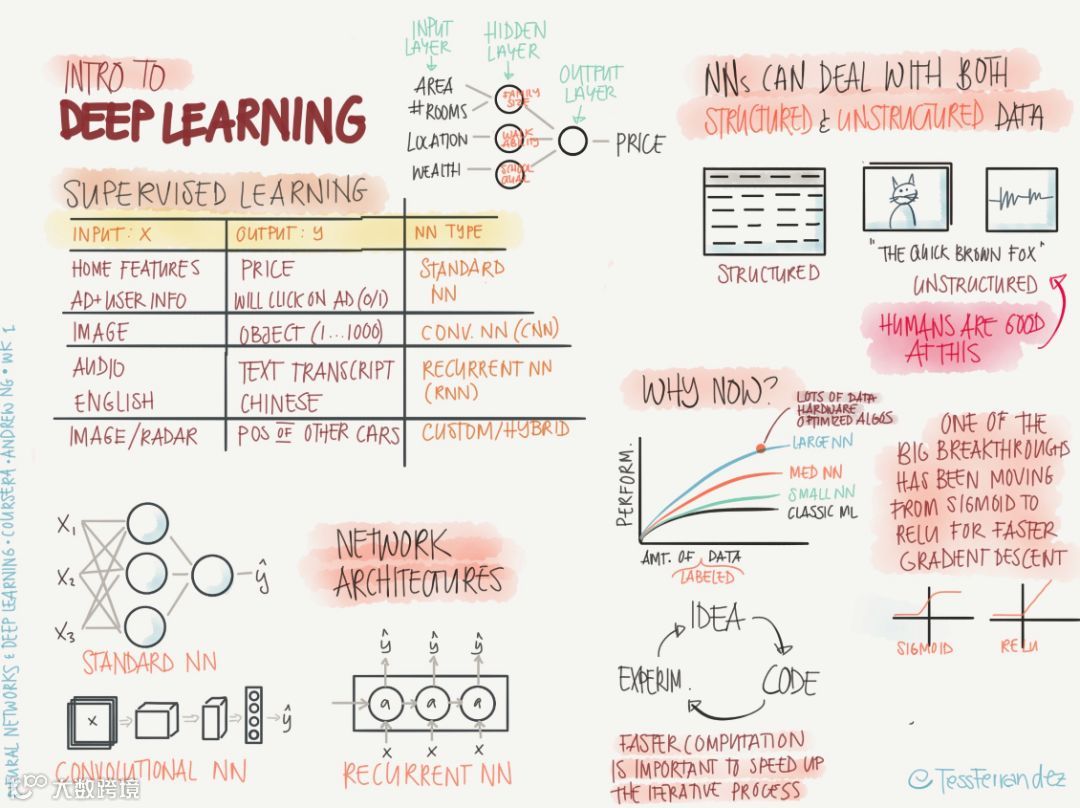 INTRO TO
DEEP LEARNING
INPUT
LAYER
HIDDEN
LAYER
OUTPUT
LAYER
AREA
#ROOMS
LOCATION
WEALTH
FAMILY
SIZE
WALK
ABILITY
SCHOOL
QUAL
PRICE
SUPERVISED LEARNING
INPUT: X OUTPUT: y NN TYPE
HOME FEATURES PRICE STANDARD
AD+USER INFO WILL CLICK ON AD (0/1) NN
IMAGE OBJECT (1...1000) CONV. NN (CNN)
AUDIO TEXT TRANSCRIPT RECURRENT NN
ENGLISH CHINESE (RNN)
IMAGE/RADAR POS OF OTHER CARS CUSTOM/HYBRID
NNs CAN DEAL WITH BOTH
STRUCTURED & UNSTRUCTURED DATA
STRUCTURED
"THE QUICK BROWN FOX"
UNSTRUCTURED
HUMANS ARE GOOD
AT THIS
WHY NOW?
LOTS OF DATA
HARDWARE
OPTIMIZED ALGOS
LARGE NN
MED NN
SMALL NN
CLASSIC ML
PERFORM.
AMT. OF DATA
LABELED
ONE OF THE
BIG BREAKTHROUGHS
HAS BEEN MOVING
FROM SIGMOID TO
RELU FOR FASTER
GRADIENT DESCENT
SIGMOID
RELU
X1
X2
X3
ŷ
STANDARD NN
NETWORK
ARCHITECTURES
X
ŷ
CONVOLUTIONAL NN
ŷ ŷ ŷ
a a a
X X X
RECURRENT NN
IDEA
EXPERIM.
CODE
FASTER COMPUTATION
IS IMPORTANT TO SPEED UP
THE ITERATIVE PROCESS
NEURAL NETWORKS & DEEP LEARNING • COURSERA • ANDREW NG • WK 1
大数跨境
@TessFerrandez